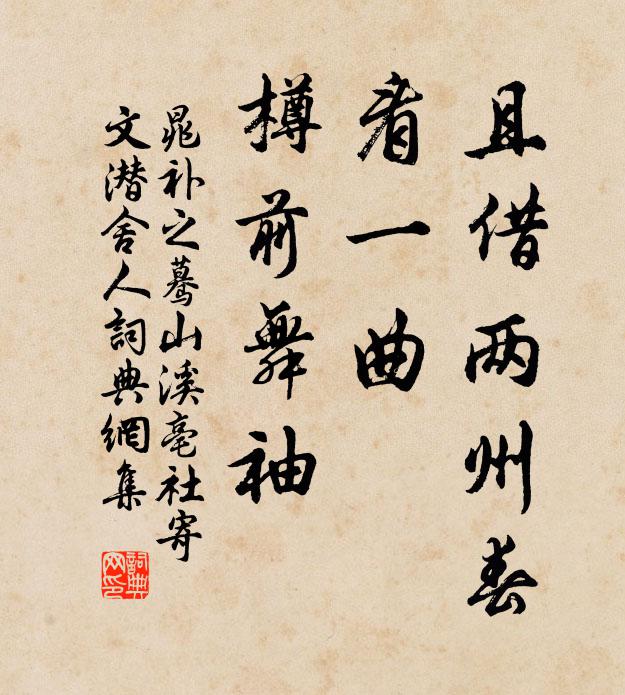 且借两州春
看一曲
樽前舞袖
晁补之蓦山溪亳社寄
文潜舍人詞典網集
詞典
网印